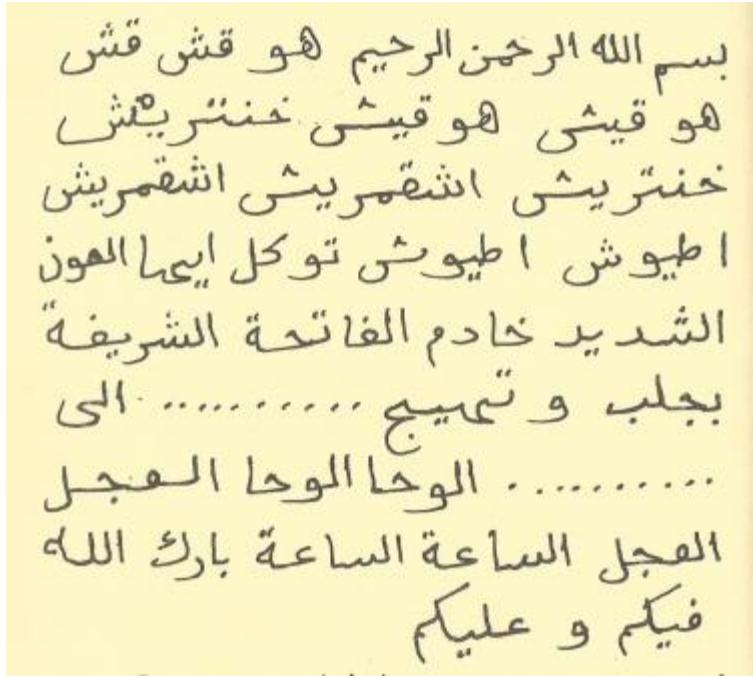 بسم الله الرحمن الرحيم هو قش قش
هو قيش هو قيش خنتريش
خنتريش اشقمريش اشقمريش
اطيوش اطيوش توكل ايها العون
الشديد خادم الفاتحة الشريفة
بجلب و تهييج ........... الى
........... الوحا الوحا العجل
العجل الساعة الساعة بارك الله
فيكم و عليكم